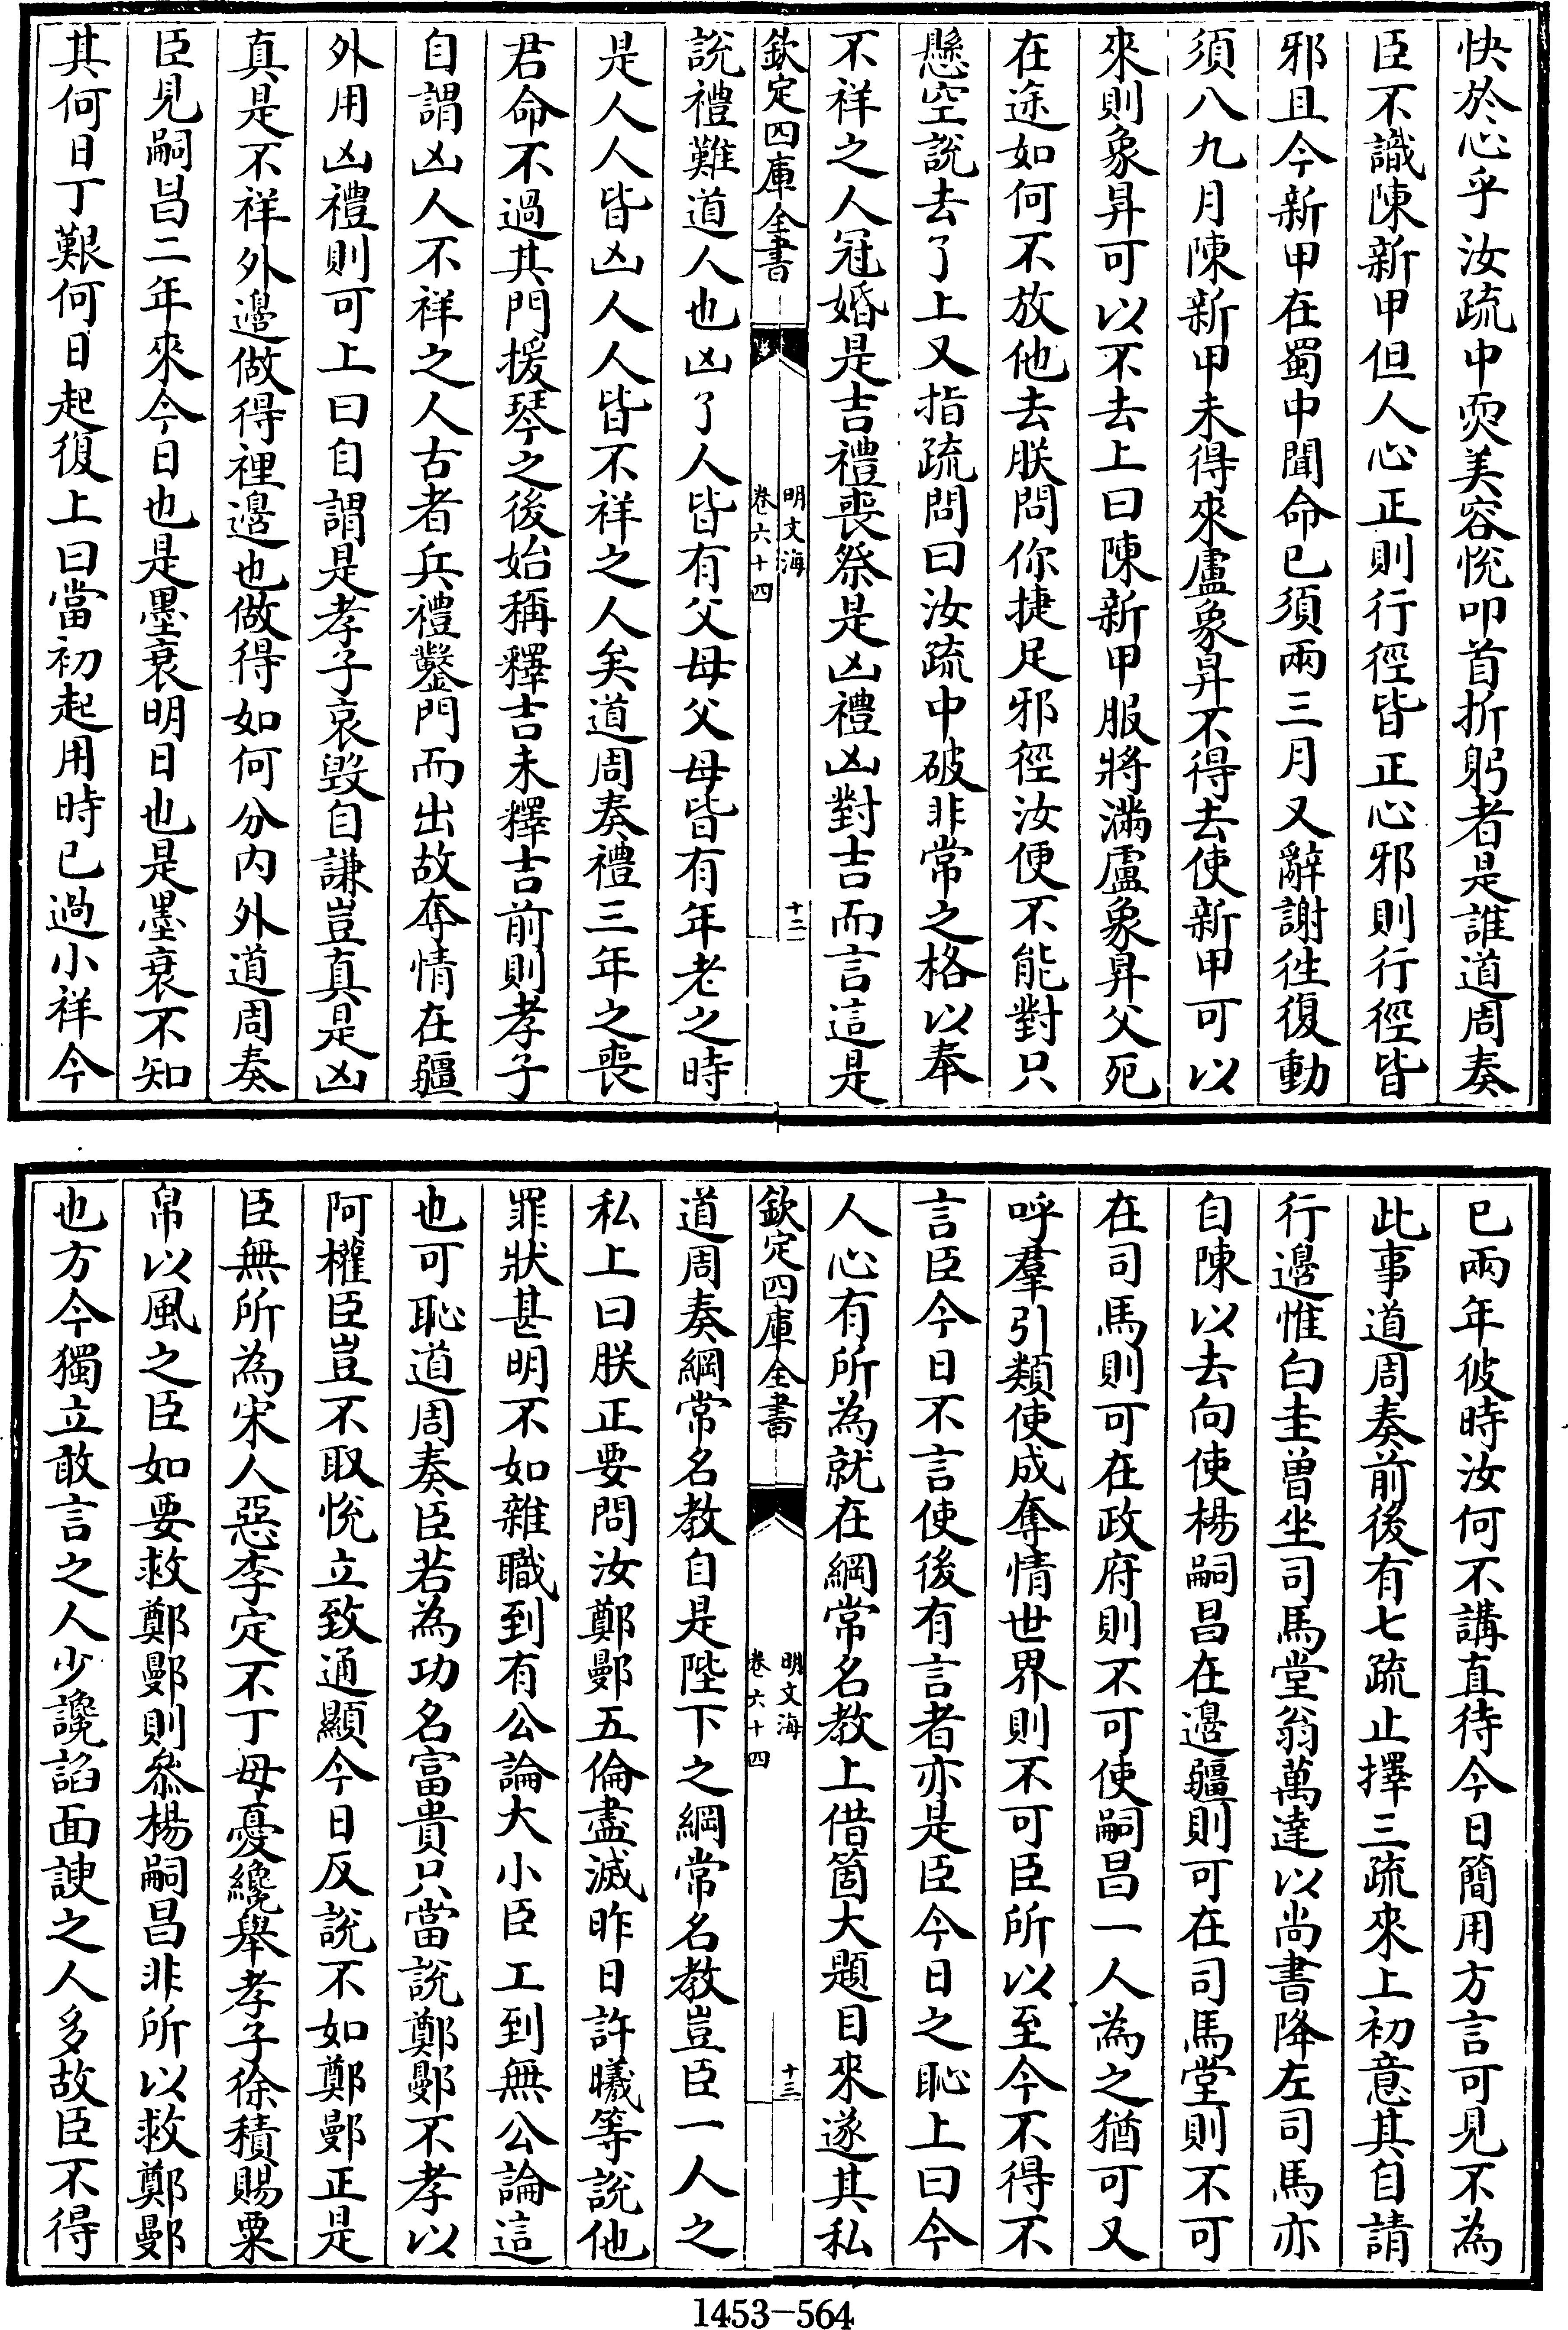 快於心乎汝疏中耎美容悅叩首折躬者是誰道周奏
臣不識陳新甲但人心正則行徑皆正心邪則行徑皆
邪且今新甲在蜀中聞命已須兩三月又辭謝徃復動
須八九月陳新甲未得來盧象昇不得去使新甲可以
來則象昇可以不去上曰陳新甲服將滿盧象昇父死
在途如何不放他去朕問你捷足邪徑汝便不能對只
懸空說去了上又指疏問曰汝疏中破非常之格以奉
不祥之人冠婚是吉禮喪祭是凶禮凶對吉而言這是
欽定四庫全書
明文海
卷六十四
十二
說禮難道人也凶了人皆有父母父母皆有年老之時
是人人皆凶人人皆不祥之人矣道周奏禮三年之喪
君命不過其門援琴之後始稱釋吉未釋吉前則孝子
自謂凶人不祥之人古者兵禮鑿門而出故奪情在疆
外用凶禮則可上曰自謂是孝子哀毀自謙豈真是凶
真是不祥外邊做得裡邊也做得如何分内外道周奏
臣見嗣昌二年來今日也是墨衰明日也是墨衰不知
其何日丁艱何日起復上曰當初起用時已過小祥今
已兩年彼時汝何不講直待今日簡用方言可見不為
此事道周奏前後有七疏止擇三疏來上初意其自請
行邊惟白圭曽坐司馬堂翁萬達以尚書降左司馬亦
自陳以去向使楊嗣昌在邊疆則可在司馬堂則不可
在司馬則可在政府則不可使嗣昌一人為之猶可又
呼羣引類使成奪情世界則不可臣所以至今不得不
言臣今日不言使後有言者亦是臣今日之恥上曰今
人心有所為就在綱常名教上借箇大題目來遂其私
欽定四庫全書
明文海
卷六十四
十三
道周奏綱常名教自是陛下之綱常名教豈臣一人之
私上曰朕正要問汝鄭鄤五倫盡滅昨日許曦等說他
罪狀甚明不如雜職到有公論大小臣工到無公論這
也可恥道周奏臣若為功名富貴只當說鄭鄤不孝以
阿權臣豈不取悅立致通顯今日反說不如鄭鄤正是
臣無所為宋人惡李定不丁母憂纔舉孝子徐積賜粟
帛以風之臣如要救鄭鄤則叅楊嗣昌非所以救鄭鄤
也方今獨立敢言之人少讒諂面諛之人多故臣不得
1453-564